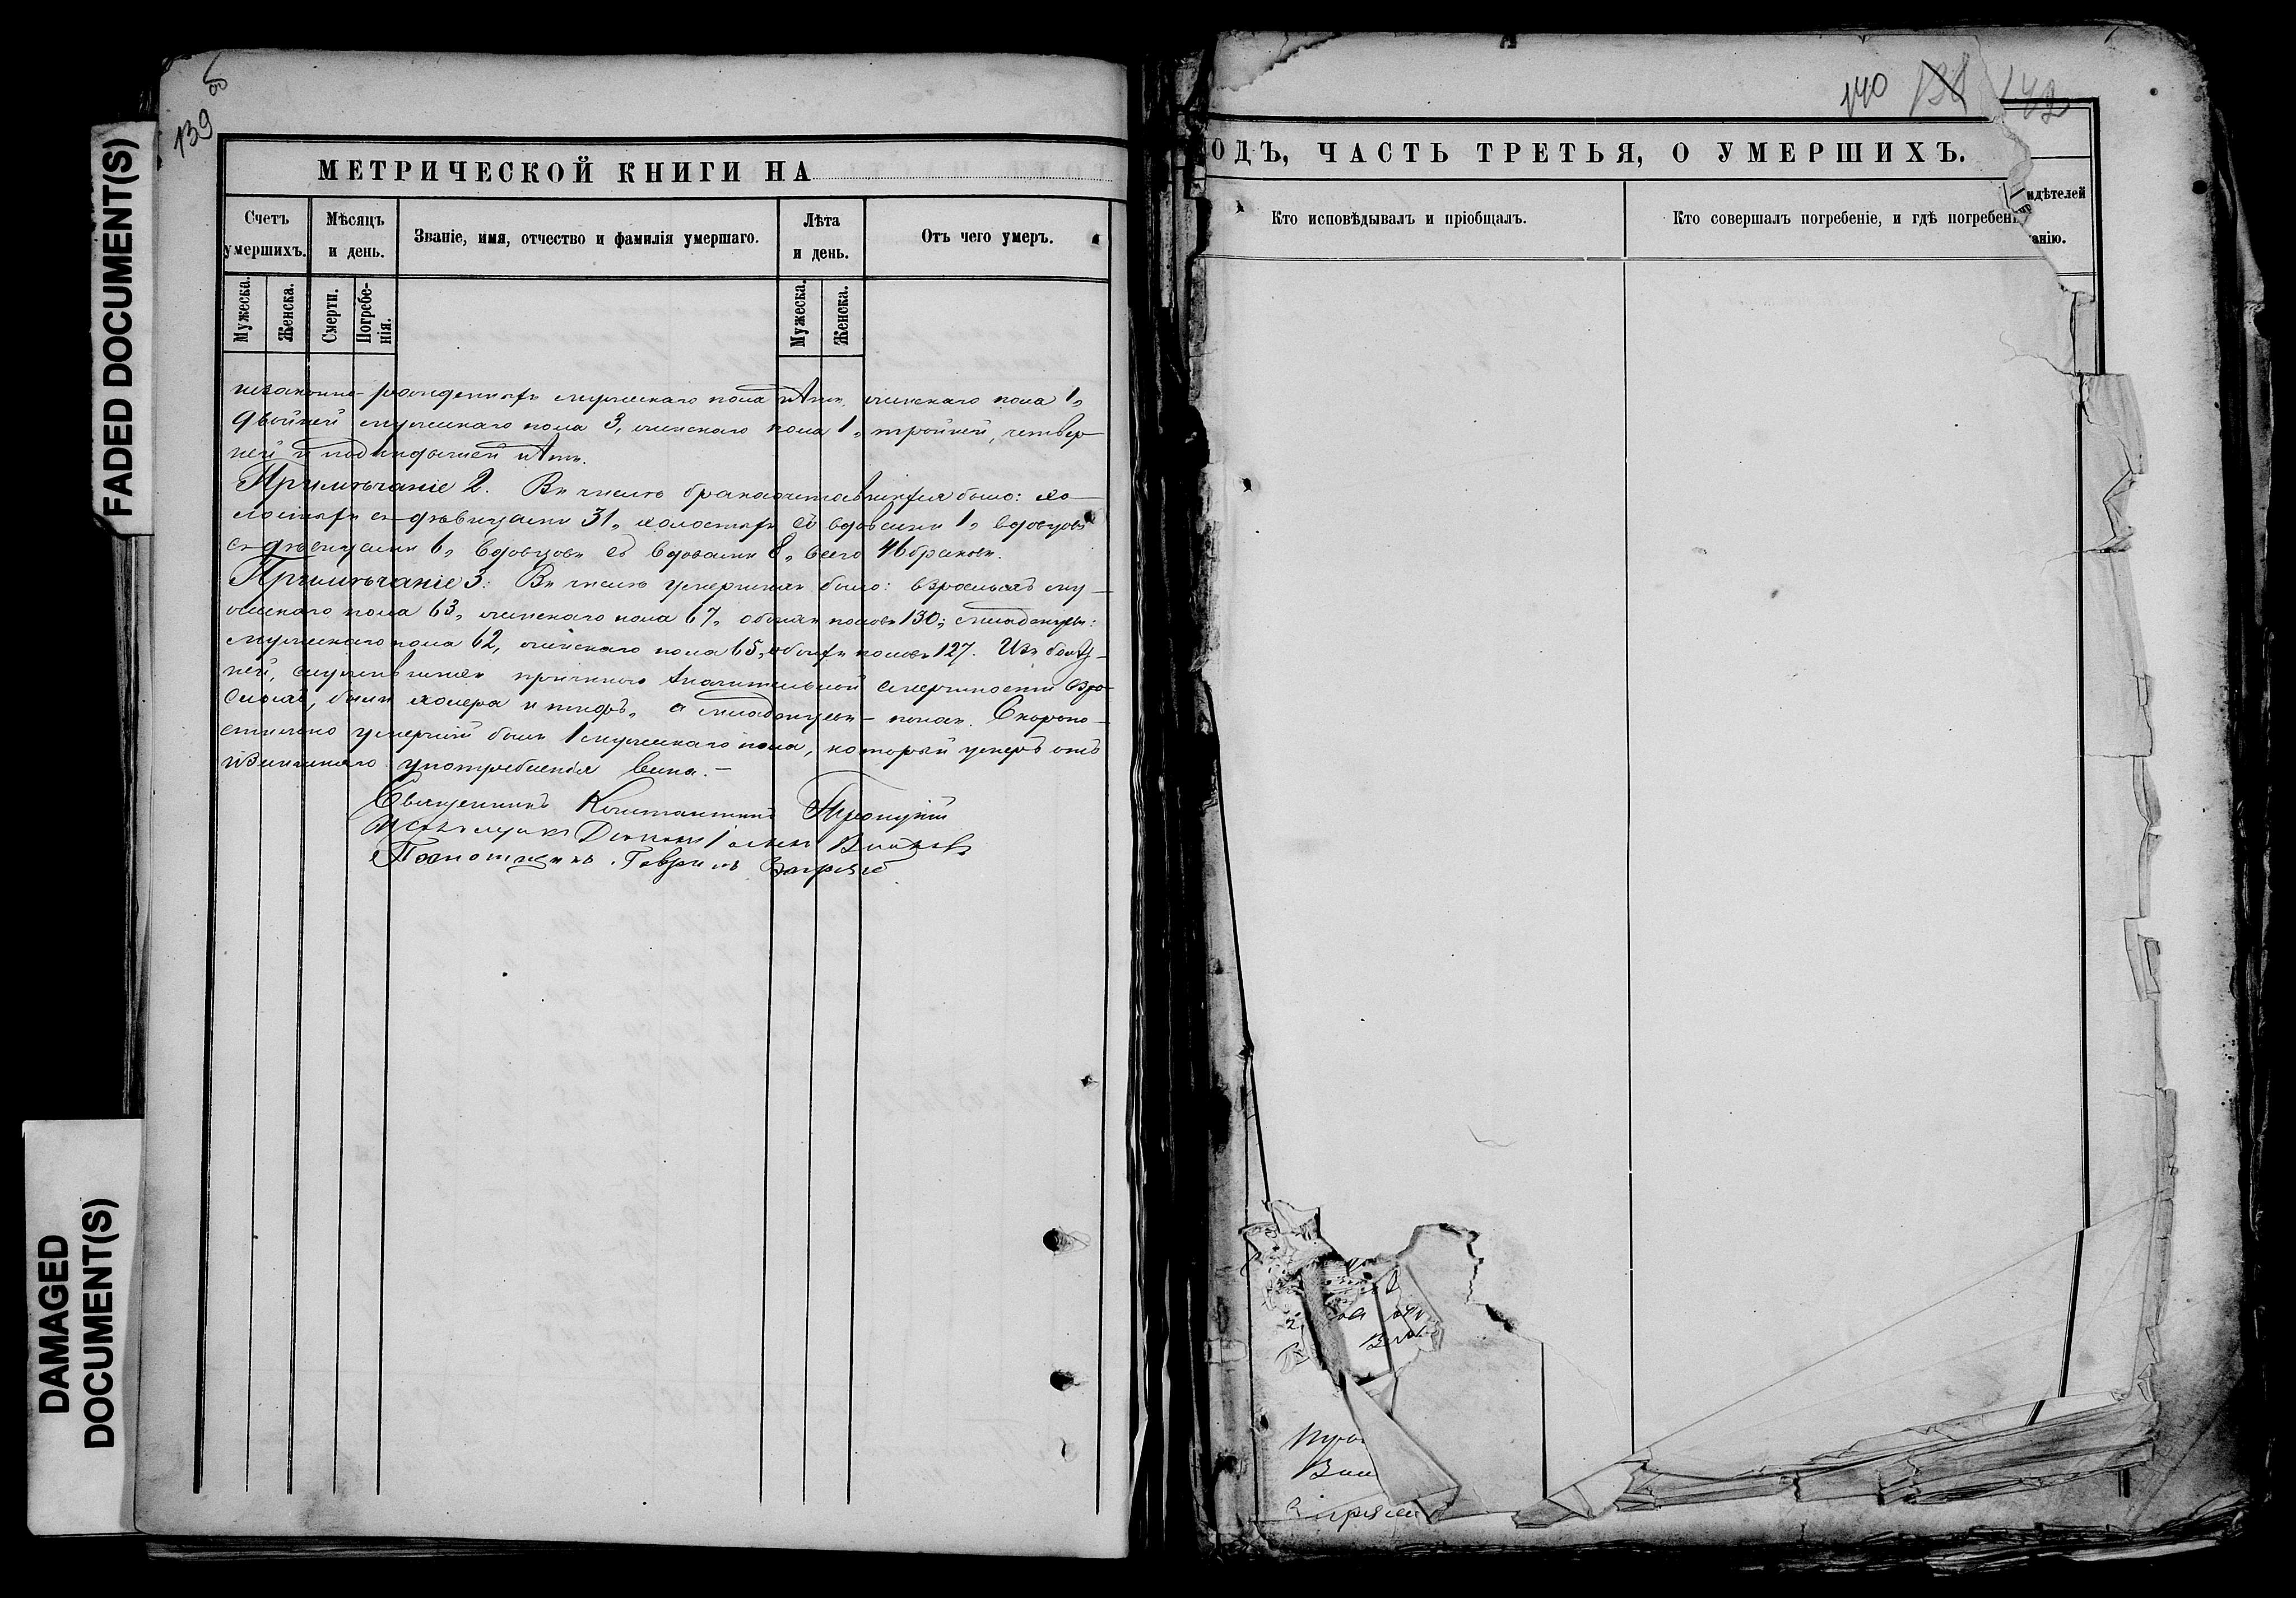 139 об
МЕТРИЧЕСКОЙ КНИГИ НА
Счетъ умершихъ.
Мѣсяцъ и день.
Званіе, имя, отчество и фамилія умершаго.
Лѣта и день.
Отъ чего умеръ.
Мужеска.
Женска.
Смерти.
Погребенія.
Мужеска.
Женска.
незаконно-рожденныхъ мужескаго пола нѣтъ, женскаго пола 1,
двойней мужескаго пола 3, женскаго пола 1, тройней, четвер-
ней и подкидышей нѣтъ.
Примѣчаніе 2. Въ числѣ бракосочетавшихся было: хо-
лостыхъ съ дѣвицами 31, холостыхъ съ вдовами 1, вдовцовъ
съ дѣвицами 6, вдовцовъ съ вдовами 8, всего 46 браковъ.
Примѣчаніе 3: Въ числѣ умершихъ было: взрослыхъ му-
жескаго пола 63, женскаго пола 67, обоихъ половъ 130; младенцевъ:
мужескаго пола 62, женскаго пола 65, обоихъ половъ 127. Изъ болѣз-
ней, служившихъ причиною значительной смертности взро-
слыхъ, были холера и тифъ, а младенцевъ - поносъ. Скоропо-
стижно умершій былъ 1 мужескаго пола, который умеръ отъ
излишняго употребленія вина. -
Священникъ Константинъ Троицкій
Діаконъ
Гаврiилъ
140 138 142
ОДЪ, ЧАСТЬ ТРЕТЬЯ, О УМЕРШИХЪ.
Кто исповѣдывалъ и пріобщалъ.
Кто совершалъ погребеніе, и гдѣ погребен
идѣтелей
анію.
FADED DOCUMENT(S)
DAMAGED
DOCUMENT(S)